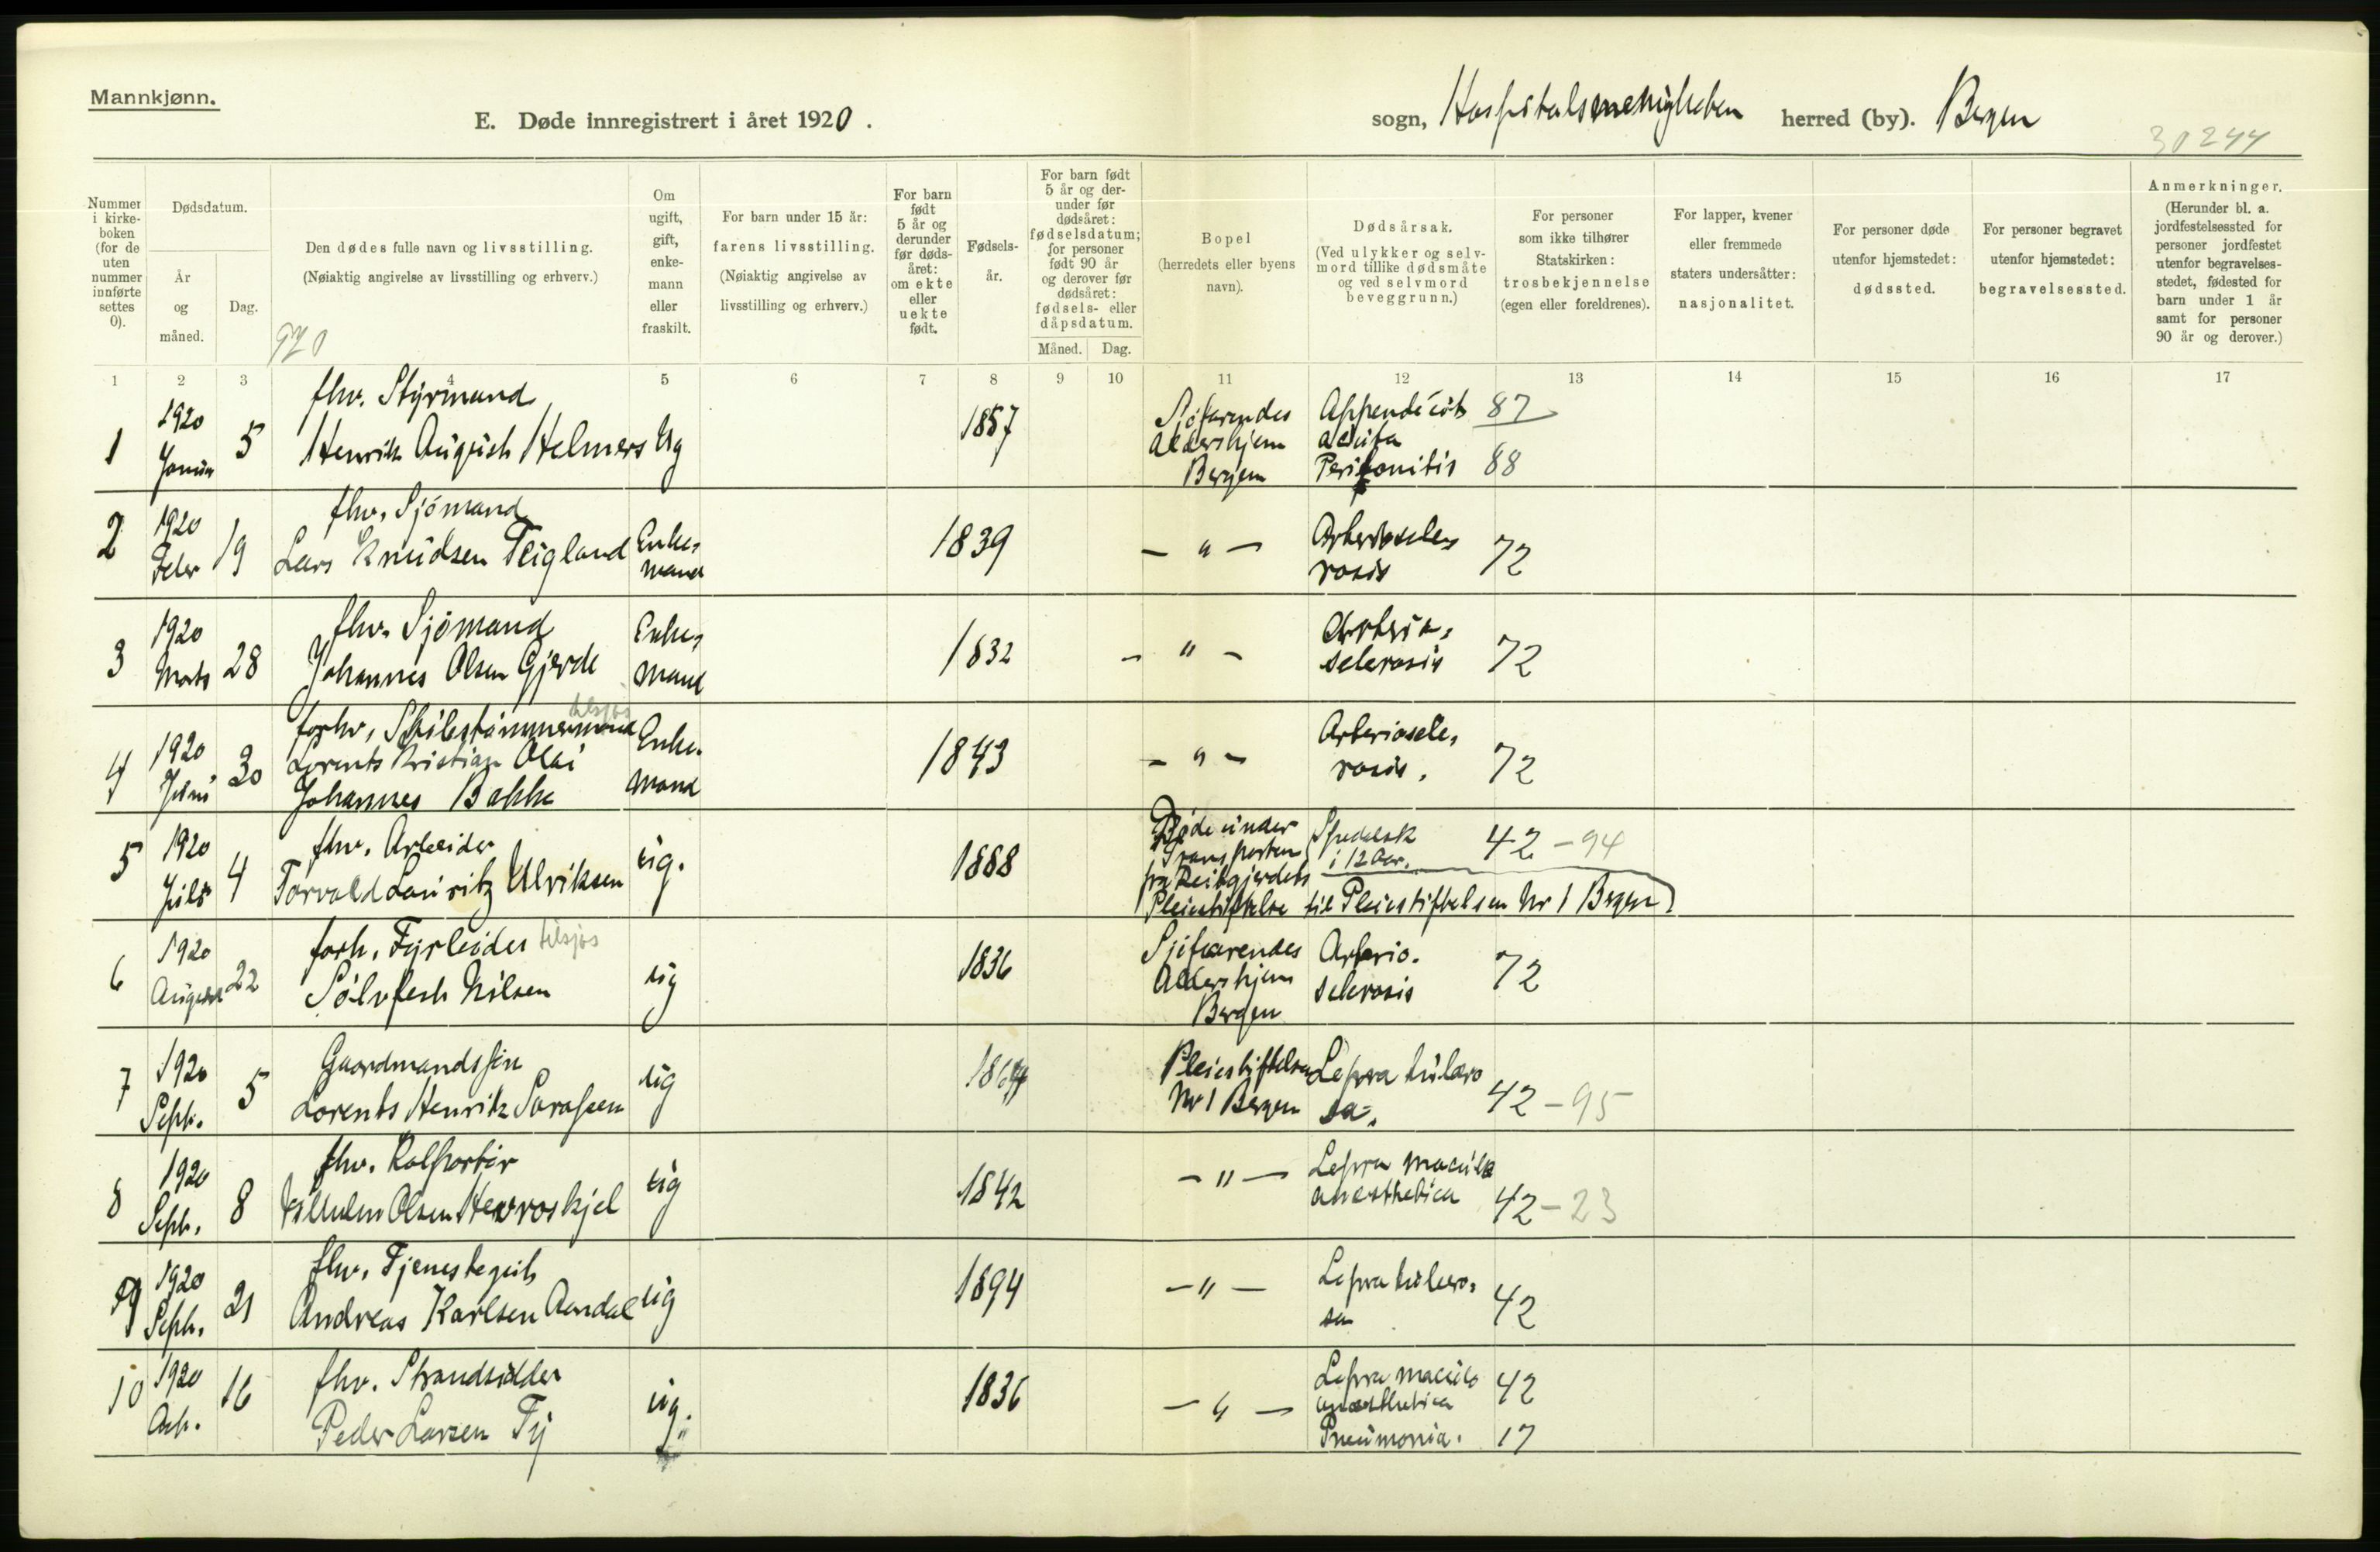 Mannkjønn.
E. Døde innregistrert i året 1920.
sogn, Hospitalsmenigheten herred (by). Bergen
30244
Nummer i kirke-boken (for de uten nummer innførte settes 0).
Dødsdatum.
År og måned.
Dag.
Den dødes fulle navn og livsstilling.
(Nøiaktig angivelse av livsstilling og erhverv.)
920
Om ugift, gift, enke-mann eller fraskilt.
For barn under 15 år:
farens livsstilling.
(Nøiaktig angivelse av livsstilling og erhverv.)
For barn født 5 år og derunder før døds-året: om ekte eller uekte født.
Fødsels-år.
For barn født 5 år og der-under før dødsåret: fødselsdatum; for personer født 90 år og derover før dødsåret: fødsels- eller dåpsdatum.
Måned. Dag.
Bopel
(herredets eller byens navn).
Dødsårsak.
(Ved ulykker og selv-mord tillike dødsmåte og ved selvmord beveggrunn.)
For personer som ikke tilhører Statskirken: trosbekjennelse (egen eller foreldrenes).
For lapper, kvener eller fremmede staters undersåtter: nasjonalitet.
For personer døde utenfor hjemstedet: dødssted.
For personer begravet utenfor hjemstedet: begravelsessted.
Anmerkninger.
(Herunder bl. a. jordfestelsessted for personer jordfestet utenfor begravelses-stedet, fødested for barn under 1 år samt for personer 90 år og derover.)
1 2 3 4 5 6 7 8 9 10 11 12 13 14 15 16 17
fhv. Styrmand
1 1920 Januar 5 Henrik August Helmers Ug 1857 Sjøfarendes Aldershjem Bergen Appendicit acuta 87
Peritonitis 88
fhv. Sjömand
2 1920 Febr 19 Lars Knudsen Teigland Enke-mand 1839 - " - Arterioscle-rosis 72
fhv. Sjömand
3 1920 Marts 28 Johannes Olsen Gjerde Enke-mand 1832 - " - Arterio-sclerosis 72
forhv, Skibstømmermand tilsjøs
4 1920 Juni 30 Lorents Kristian Olai Johannes Bakke Enke-mand 1843 - " - Arterioscle-rosis. 72
fhv. Arbeider
5 1920 Juli 4 Torvald Lauritz Ulriksen ug. 1888 Døde under Transporten fra Reitgjerdets Pleiestiftelse til Pleiestiftelsen Nr 1 Bergen Spedalsk i 12 Aar. 42 - 94
forh. Fyrbøder tilsjøs
6 1920 August 22 Sølvfest Nilsen ug 1836 Sjøfarendes Aldershjem Bergen Arterio-sclerosis 72
Gaardmandssøn
7 1920 Sept. 5 Lorents Henrik ug Pleiestiftelsen Nr 1 Bergen Lepra tubero sa. 42 - 95
fhv. Kolportør
8 1920 Sept. 8 Vilhelm Olsen ug 1842 - " - Lepra maculo anesthetica 42 - 23
fhv. Tjenestegut
9 1920 Sept. 21 Andreas Karlsen Aandal ug 1894 - " - Lepra tubero-sa 42
fhv. Strandsidder
10 1920 16 Peder Larsen Ty ug. 1836 - " - Lepra maculo anesthetica 42
Pneumonia. 17